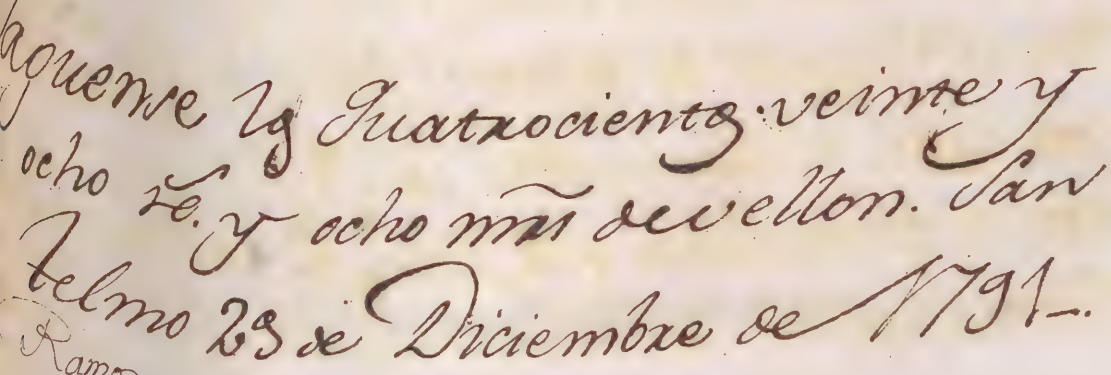 aguense los Quatrocientos veinte y
ocho rs. y ocho mrs de vellon. San
telmo 29 de Diciembre de 1791.
Ramo